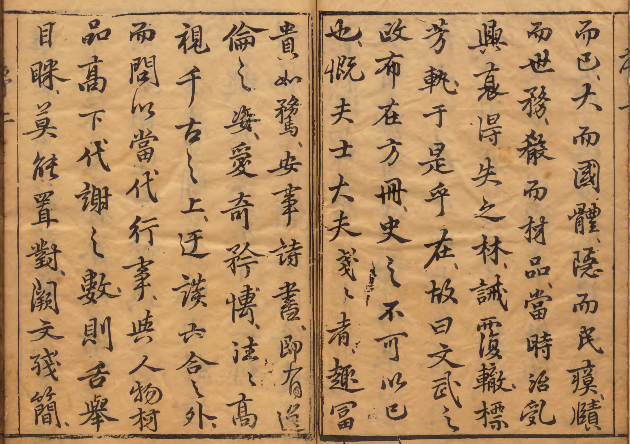 而已大而國體隱而民瘼賾
而世務襍而材品當時治乱
興衰得失之林誡覆轍標
芳軌于是乎在故曰文武之
政布在方冊史之不可以已
也慨夫士大夫戔〻者趣冨
貴如騖安事詩書即有逸
倫之姿愛奇矜愽法〻高
視千古之上迂談六合之外
而問以當代行事與人物材
品高下代謝之數則舌舉
目眯莫能置對闕文殘簡